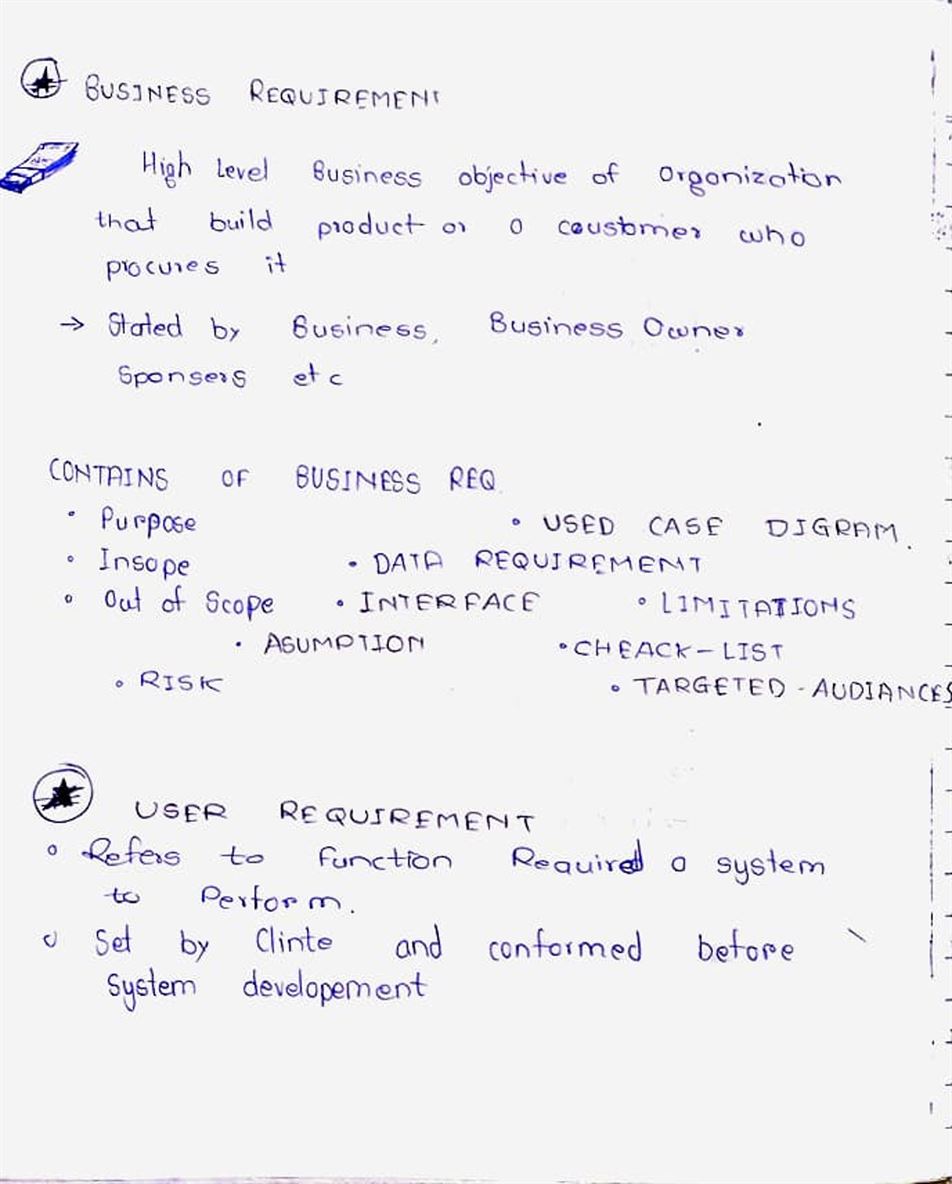 BUSINESS REQUIREMENT
High Level Business objective of Organization
that build product or a coustomer who
procures it
→ Stated by Business, Business Owner
Sponsers etc
CONTAINS OF BUSINESS REQ.
• Purpose • USED CASE DIGRAM.
• Insope • DATA REQUIREMENT
• Out of Scope • INTERFACE • LIMITATIONS
• ASUMPTION • CHEACK-LIST
• RISK • TARGETED-AUDIANCES
USER REQUIREMENT
• Refers to function Required a system
to Perform.
• Set by Clinte and conformed before
System developement